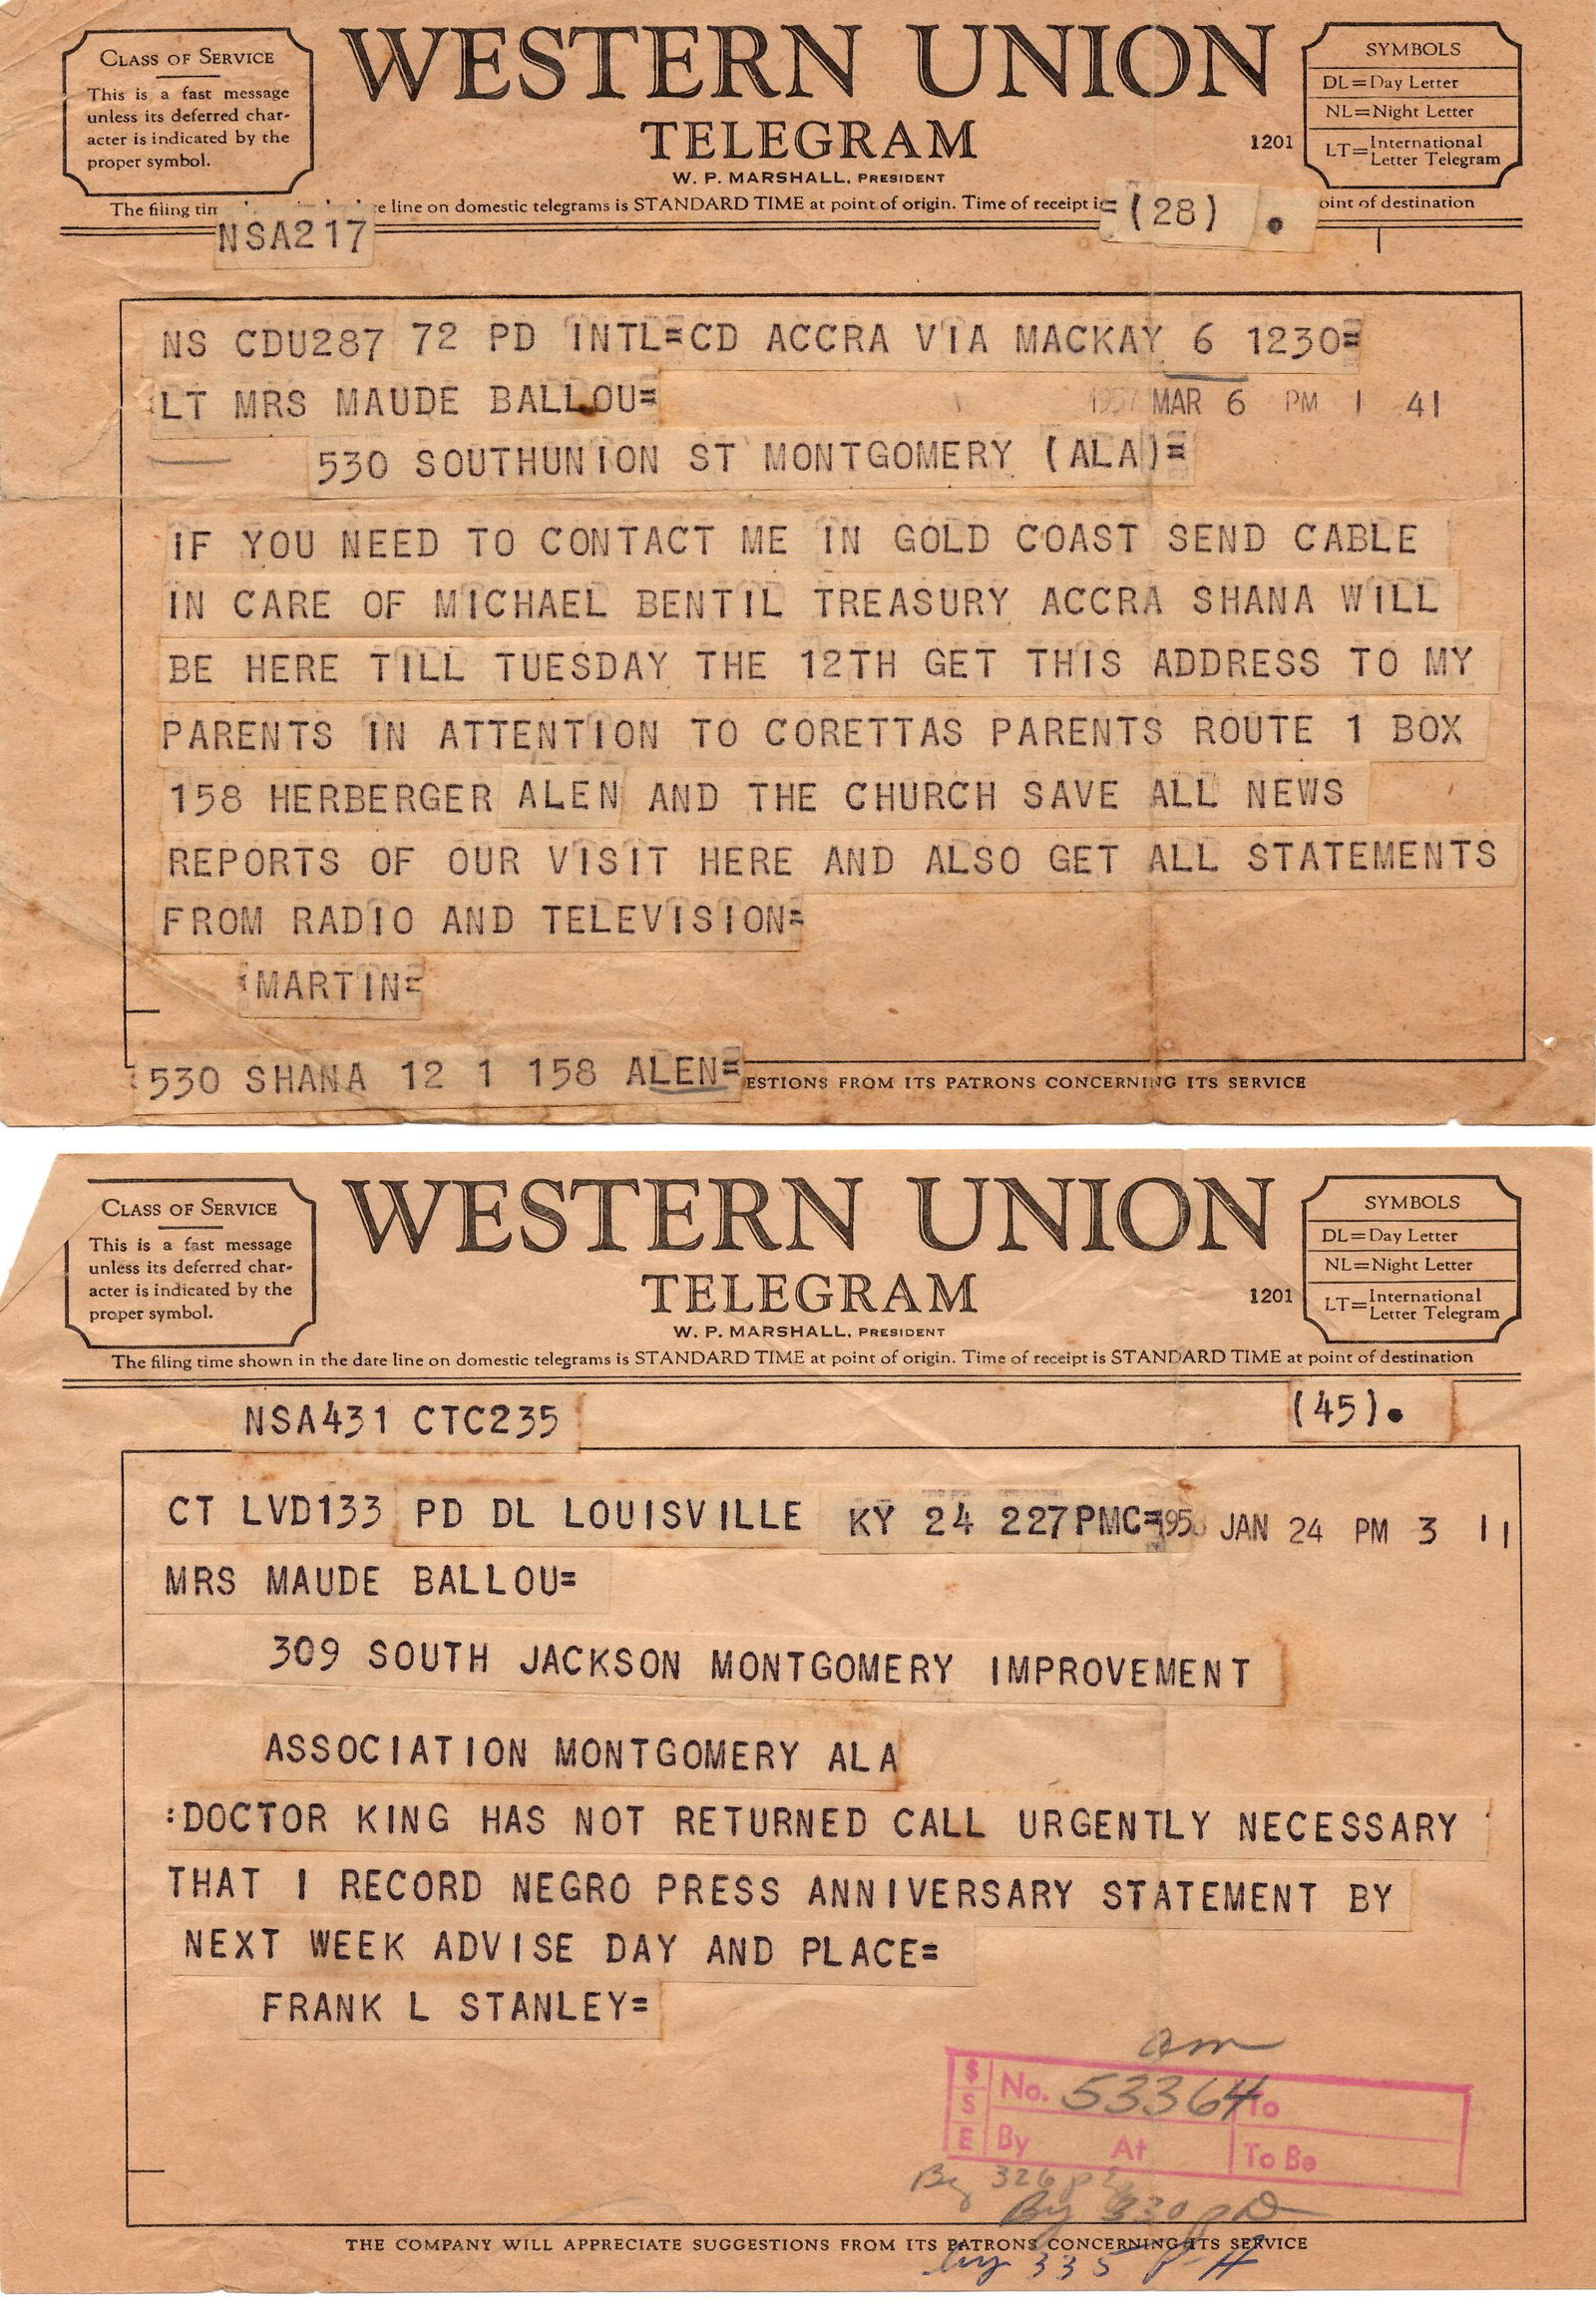 CLASS OF SERVICE
This is a fast message
unless its deferred char-
acter is indicated by the
proper symbol.
WESTERN UNION
TELEGRAM
W. P. MARSHALL, PRESIDENT
1201
SYMBOLS
DL=Day Letter
NL=Night Letter
LT=International
Letter Telegram
The filing tin e line on domestic telegrams is STANDARD TIME at point of origin. Time of receipt is oint of destination
NSA217
(28) .
NS CDU287 72 PD INTL=CD ACCRA VIA MACKAY 6 1230=
LT MRS MAUDE BALLOU=
1957 MAR 6 PM 1 41
530 SOUTHUNION ST MONTGOMERY (ALA)=
IF YOU NEED TO CONTACT ME IN GOLD COAST SEND CABLE
IN CARE OF MICHAEL BENTIL TREASURY ACCRA SHANA WILL
BE HERE TILL TUESDAY THE 12TH GET THIS ADDRESS TO MY
PARENTS IN ATTENTION TO CORETTAS PARENTS ROUTE 1 BOX
158 HERBERGER ALEN AND THE CHURCH SAVE ALL NEWS
REPORTS OF OUR VISIT HERE AND ALSO GET ALL STATEMENTS
FROM RADIO AND TELEVISION=
MARTIN=
530 SHANA 12 1 158 ALEN=
ESTIONS FROM ITS PATRONS CONCERNING ITS SERVICE
CLASS OF SERVICE
This is a fast message
unless its deferred char-
acter is indicated by the
proper symbol.
WESTERN UNION
TELEGRAM
W. P. MARSHALL, PRESIDENT
1201
SYMBOLS
DL=Day Letter
NL=Night Letter
LT=International
Letter Telegram
The filing time shown in the date line on domestic telegrams is STANDARD TIME at point of origin. Time of receipt is STANDARD TIME at point of destination
NSA431 CTC235
(45).
CT LVD133 PD DL LOUISVILLE KY 24 227PMC=
JAN 24 PM 3 11
MRS MAUDE BALLOU=
309 SOUTH JACKSON MONTGOMERY IMPROVEMENT
ASSOCIATION MONTGOMERY ALA
:DOCTOR KING HAS NOT RETURNED CALL URGENTLY NECESSARY
THAT I RECORD NEGRO PRESS ANNIVERSARY STATEMENT BY
NEXT WEEK ADVISE DAY AND PLACE=
FRANK L STANLEY=
am
$
S
E
No. 53364 To
By At To Be
By 326 p
By 330 p
by 335 p H
THE COMPANY WILL APPRECIATE SUGGESTIONS FROM ITS PATRONS CONCERNING ITS SERVICE